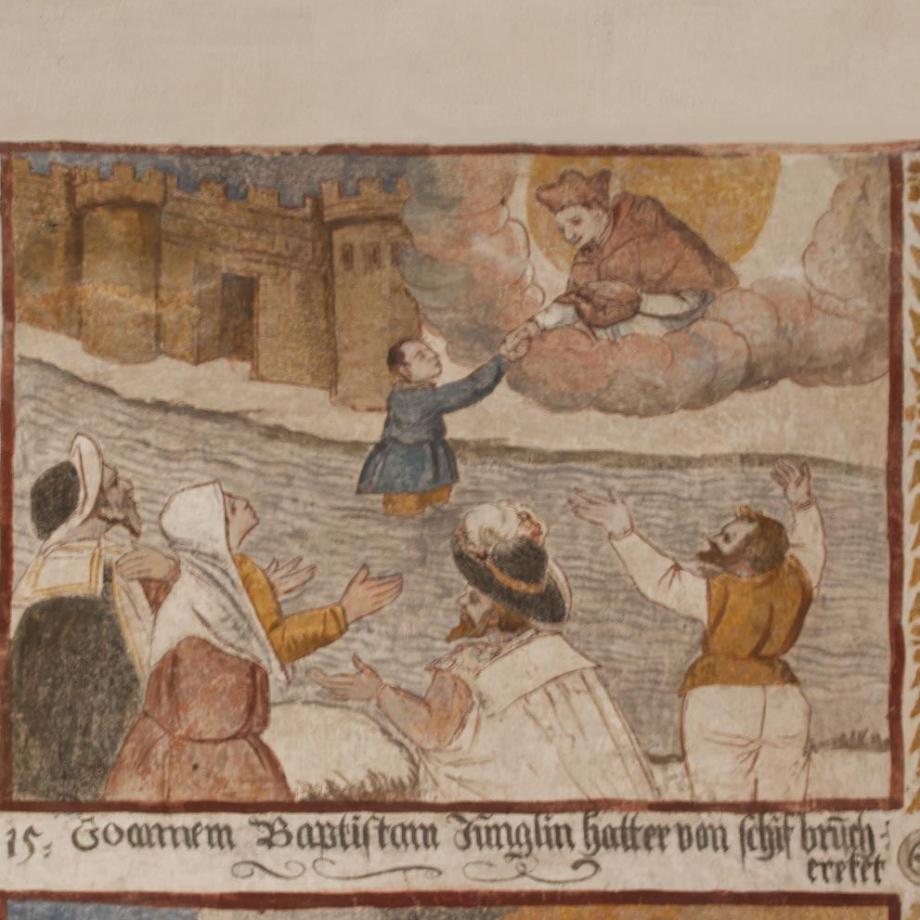 15: Joannem Baptistam Jünglin hatt er von schif brüch:
ereket